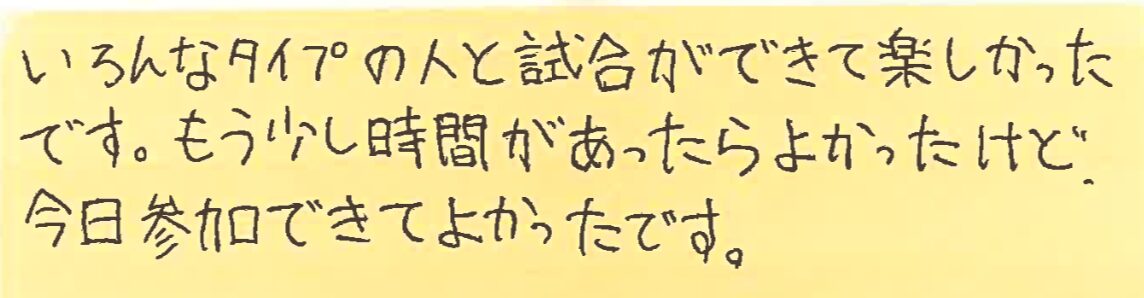 いろんなタイプの人と試合ができて楽しかった
です。もう少し時間があったらよかったけど、
今日参加できてよかったです。